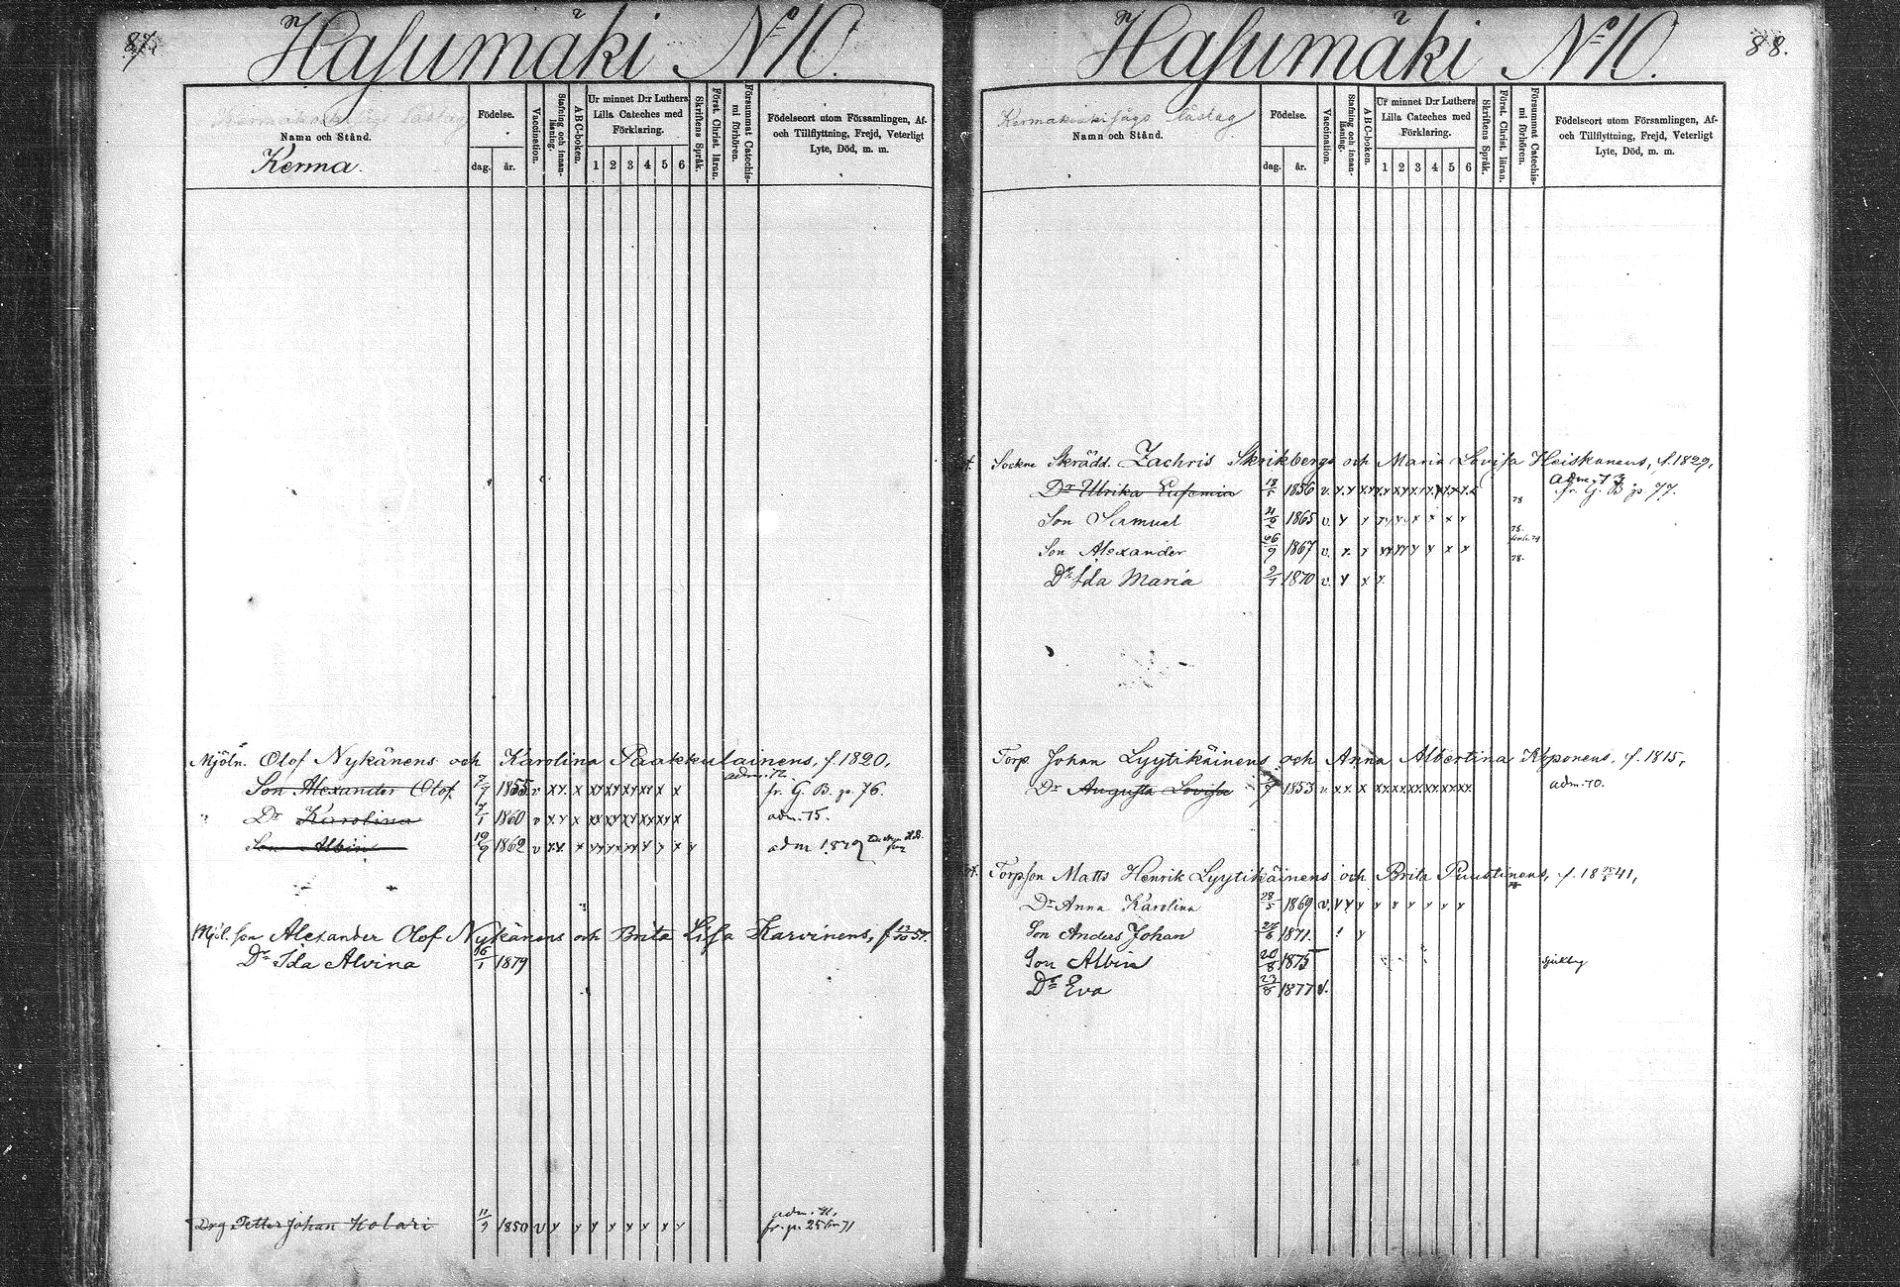 87.
Hasumäki No 10.
Namn och Stånd.
Kerma.
Födelse.
dag. år.
Vaccination.
Stafning och innan-läsning.
ABC-boken.
Ur minnet D:r Luthers
Lilla Cateches med
Förklaring.
1 2 3 4 5 6
Skriftens Språk.
Först. Christ. läran.
Försummat Catechis-mi förhören.
Födelseort utom Församlingen, Af-
och Tillflyttning, Frejd, Veterligt
Lyte, Död, m. m.
Mjöln. Olof Nykänens och Karolina Paakkulainens, f. 1820,
adm. 72.
Son Alexander Olof 7/7 1855 v x x x x x x x x x x x fr. G. B. p. 76.
Dr Karolina 7/1 1860 v x x x x x x x x x x x adm. 75.
Son Albin 19/9 1862 v x x x x x x x x x x x adm 1879
Mjöl. son Alexander Olof Nykänens och Brita Lisa Karvinens, f 57.
Dr Ida Alvina 16/1 1879
adm. 71.
Drg Petter Johan Kolari 11/9 1850 v x x x x x x x x fr. p. 25 71
88.
Hasumäki No 10.
Kermakoski sågs Lästag
Namn och Stånd.
Födelse.
dag. år.
Vaccination.
Stafning och innan-läsning.
ABC-boken.
Ur minnet D:r Luthers
Lilla Cateches med
Förklaring.
1 2 3 4 5 6
Skriftens Språk.
Först. Christ. läran.
Försummat Catechis-mi förhören.
Födelseort utom Församlingen, Af-
och Tillflyttning, Frejd, Veterligt
Lyte, Död, m. m.
Sockne Skrädd. Zachris Skrikbergs och Maria Lovisa Heiskanens, f. 1829,
adm. 73
Dr Ulrika Eufemia 18/5 1856 v. x x x x x x x x x x x x fr. G. B p. 77.
78
Son Samuel 1865 v x x x x x x x x x
78.
Son Alexander 26/9 1867 v. x. x x x x x x x x
78.
Dr Ida Maria 9/1 1870 v x x x
Torp. Johan Lyytikäinens och Anna Albertina Kopponens, f. 1815,
Dr Augusta Lovisa 1853 v x x x x x x x x x x x x adm. 70.
Torpson Matts Henrik Lyytikäinens och Brita Puustinens, f. 18 41,
Dr Anna Karolina 28/5 1869 v. x x x x x x x x
Son Anders Johan 1871.
Son Albin 20/8 1875 sjuklig
Dr Eva 23/8 1877 v.